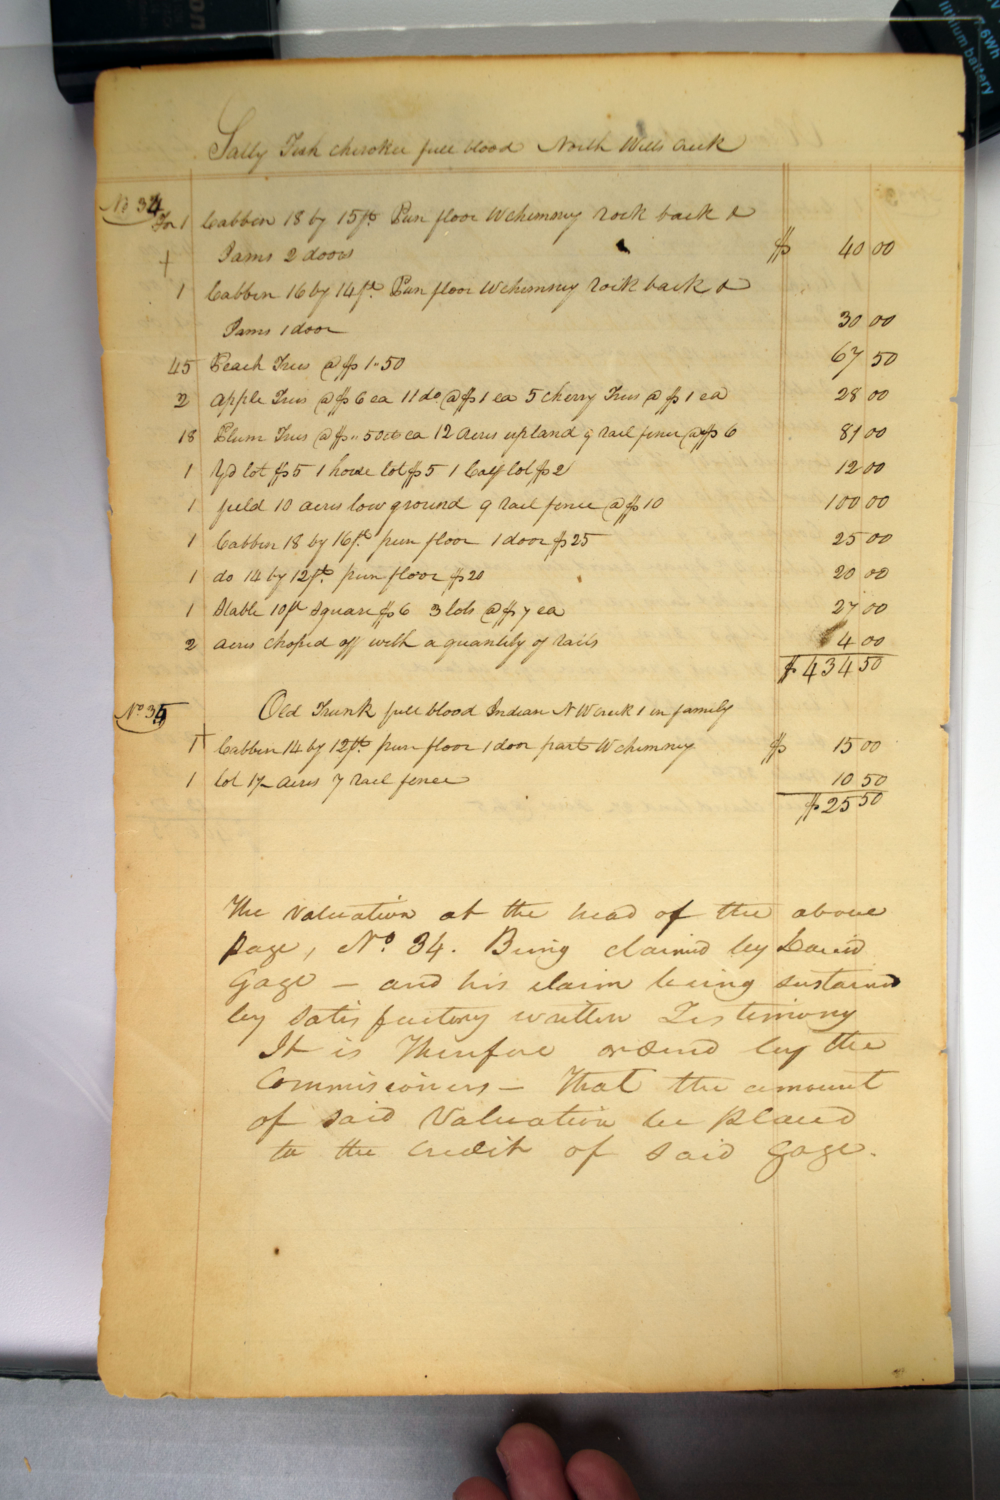 Sally Fish cherokee full blood North Wills Creek
No 34
For 1 Cabben 18 by 15ft. Pun floor W chimney rock back &
Jams 2 doors $ 40 00
1 Cabben 16 by 14ft. Pun floor W chimney rock back &
Jams 1 door 30 00
45 Peach Trees @ $1"50 67 50
2 apple Trees @ $6 ea 11 do @ $1 ea 5 cherry Trees @ $1 ea 28 00
18 Plum Trees @ $"50 ct ea 12 acres upland 9 rail fence @ $6 81 00
1 Yd lot $5 1 house lot $5 1 Calf lot $2 12 00
1 field 10 acres low ground 9 rail fence @ $10 100 00
1 Cabben 18 by 16ft. pun floor 1 door $25 25 00
1 do 14 by 12ft. pun floor $20 20 00
1 Stable 10ft square $6 3 lots @ $7 ea 27 00
2 acres choped off with a quantity of rails 4 00
$ 434 50
No 35 Old Trunk full blood Indian N W Creek 1 in family
1 Cabben 14 by 12ft. pun floor 1 door part W chimney $ 15 00
1 lot acres 7 rail fence 10 50
$ 25 50
The valuation at the head of the above
page, No 34. Being claimed by David
Gage – and his claim being sustained
by satisfactory written Testimony
It is Therefore ordered by the
Commissioners – That the amount
of said Valuation be placed
to the credit of said Gage.
on
6Wh
lithium battery